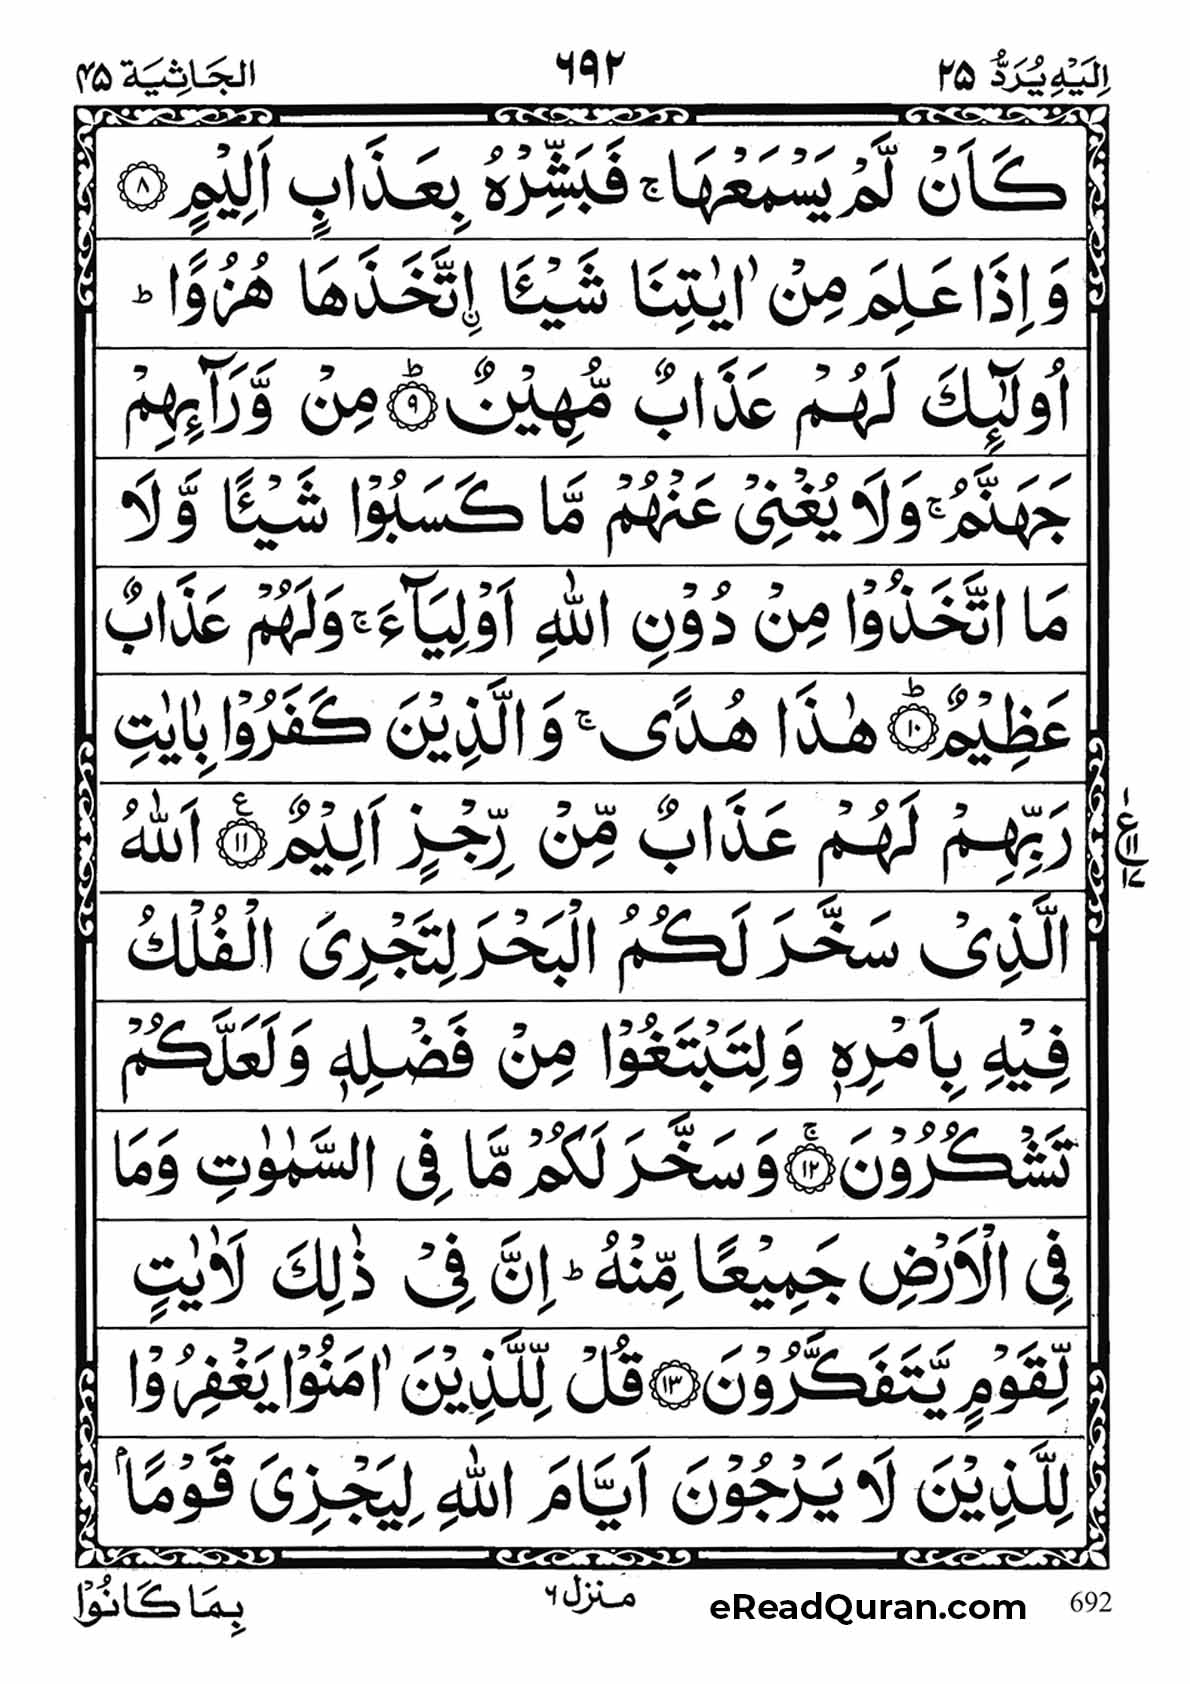 اِلَيْهِ يُرَدُّ ٢٥
٦٩٢
الجَاثِيَة ٤٥
كَاَنْ لَّمْ يَسْمَعْهَا ۚ فَبَشِّرْهُ بِعَذَابٍ اَلِيْمٍ ٨
وَاِذَا عَلِمَ مِنْ اٰيٰتِنَا شَيْـًٔا ۨاتَّخَذَهَا هُزُوًا ؕ
اُولٰٓئِكَ لَهُمْ عَذَابٌ مُّهِيْنٌ ؕ ٩ مِنْ وَّرَآئِهِمْ
جَهَنَّمُ ۚ وَلَا يُغْنِىْ عَنْهُمْ مَّا كَسَبُوْا شَيْـًٔا وَّلَا
مَا اتَّخَذُوْا مِنْ دُوْنِ اللّٰهِ اَوْلِيَآءَ ۚ وَلَهُمْ عَذَابٌ
عَظِيْمٌ ؕ ١٠ هٰذَا هُدًى ۚ وَالَّذِيْنَ كَفَرُوْا بِاٰيٰتِ
رَبِّهِمْ لَهُمْ عَذَابٌ مِّنْ رِّجْزٍ اَلِيْمٌ ١١ ع اَللّٰهُ
الَّذِىْ سَخَّرَ لَكُمُ الْبَحْرَ لِتَجْرِىَ الْفُلْكُ
فِيْهِ بِاَمْرِهٖ وَلِتَبْتَغُوْا مِنْ فَضْلِهٖ وَلَعَلَّكُمْ
تَشْكُرُوْنَ ۚ ١٢ وَسَخَّرَ لَكُمْ مَّا فِى السَّمٰوٰتِ وَمَا
فِى الْاَرْضِ جَمِيْعًا مِّنْهُ ؕ اِنَّ فِىْ ذٰلِكَ لَاٰيٰتٍ
لِّقَوْمٍ يَّتَفَكَّرُوْنَ ١٣ قُلْ لِّلَّذِيْنَ اٰمَنُوْا يَغْفِرُوْا
لِلَّذِيْنَ لَا يَرْجُوْنَ اَيَّامَ اللّٰهِ لِيَجْزِىَ قَوْمًاۢ
بِمَا كَانُوْا
منزل ٦
eReadQuran.com
692